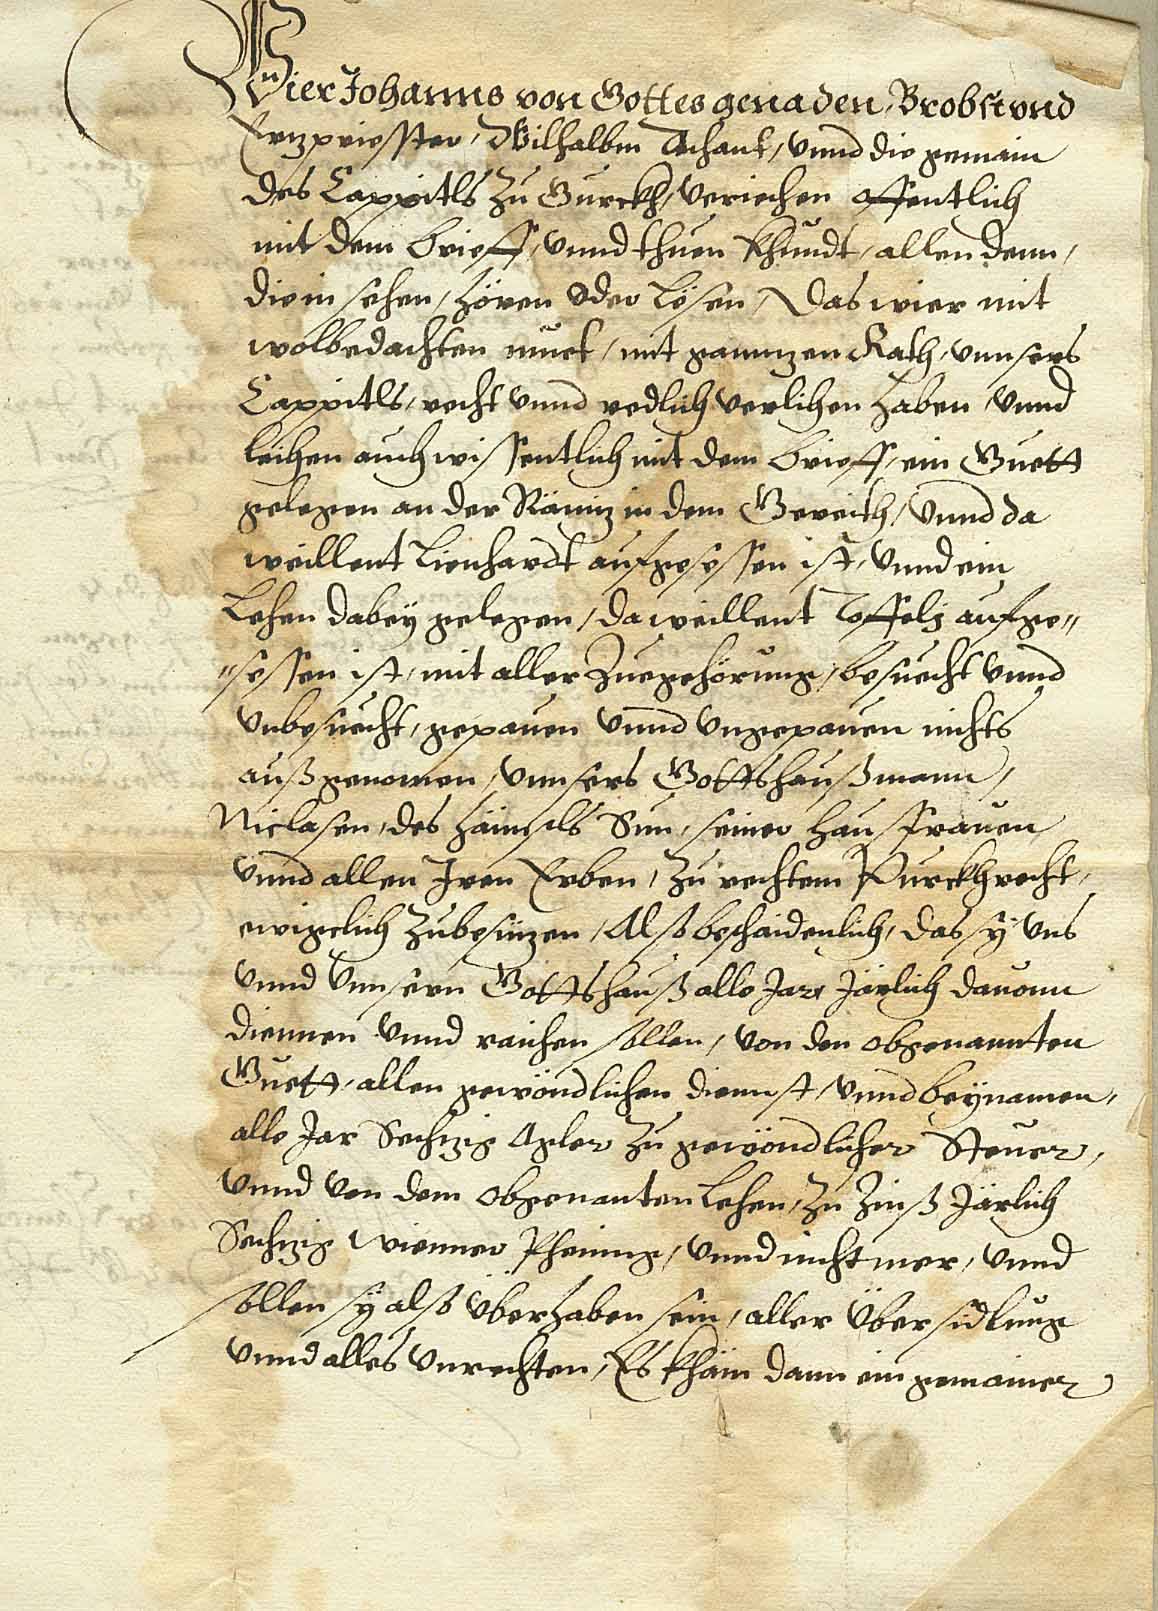 Wier Johanns von Gottes genaden, Brobst vnd
Ertzpriesster, Wilhalbm Techant, vnnd die gemain
des Cappitls zu Gurckh, veriechen offentlich
mit dem brieff, vnnd thuen khundt, allen denn,
die in sehen, hören oder lösen, Das wier mit
wolbedachten muet, mit ganntzen Rath, vnnsers
Cappitls, recht vnnd redlich verlihen haben vnnd
leihen auch wissentlich mit dem brieff, ein Guett
gelegen an der in dem Gereith, vnnd da
weillent Lienhardt aufgesessen ist, vnnd ein
Lehen dabey gelegen, da weillent aufge=
=sessen ist, mit aller Zuegehörung, besuecht vnnd
vnbesuecht, gepauen vnnd vngepauen nichts
außgenomen, vnnsers Gottshaußmann,
Niclasen, des Sun, seiner hausfrauen
vnnd allen Iren Erben, zu rechtem Purckhrecht,
ewigclich zubesitzen, Also beschaidenlich, das sy vns
vnnd vnnsern Gottshauß alle Jar Järlich dauonn
diennen vnnd raichen sollen, von den obgenannten
Guett, allen gewöndlichen diennst, vnnd beynamen,
alle Jar Sechzig Agler zu gewöndlicher Steuer,
vnnd von dem obgenanten Lehen, zu Zinß Järlich
Sechtzig Wienner Phening, vnnd nicht mer, vnnd
sollen sy also überhaben sein, aller übersidlung
vnnd alles vnrechten, Es khäm dann ein gemainer